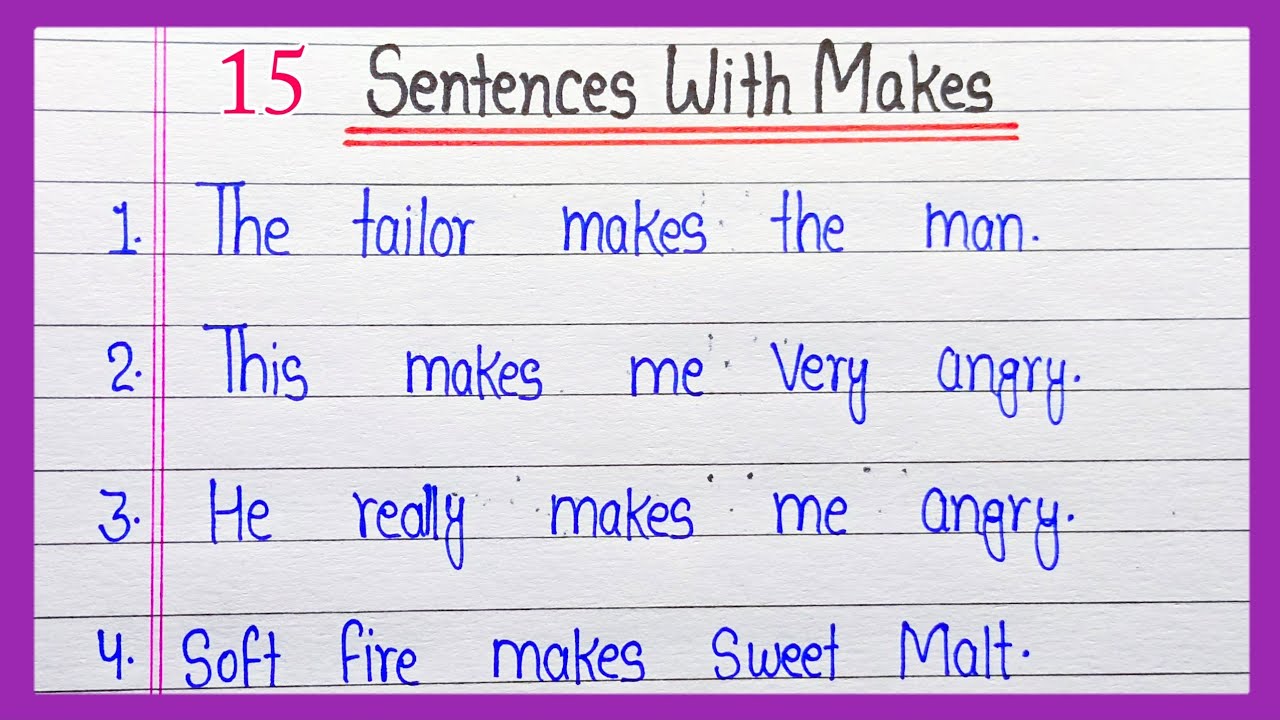 15 Sentences With Makes
1. The tailor makes the man.
2. This makes me very angry.
3. He really makes me angry.
4. Soft fire makes sweet Malt.